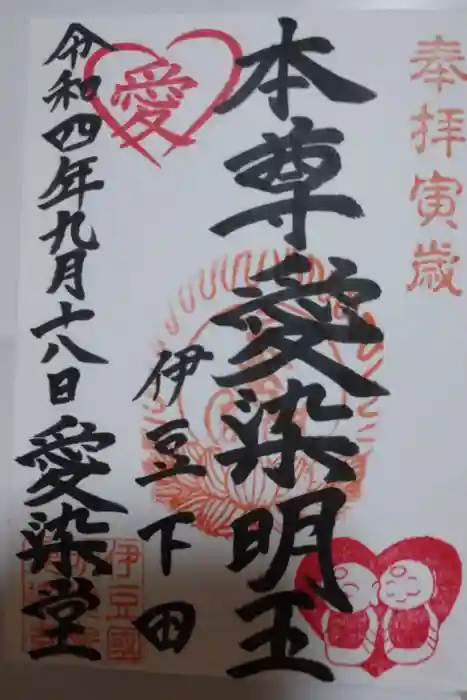 奉拝寅歳
本尊愛染明王
伊豆下田
愛
令和四年九月十八日
愛染堂
伊豆國